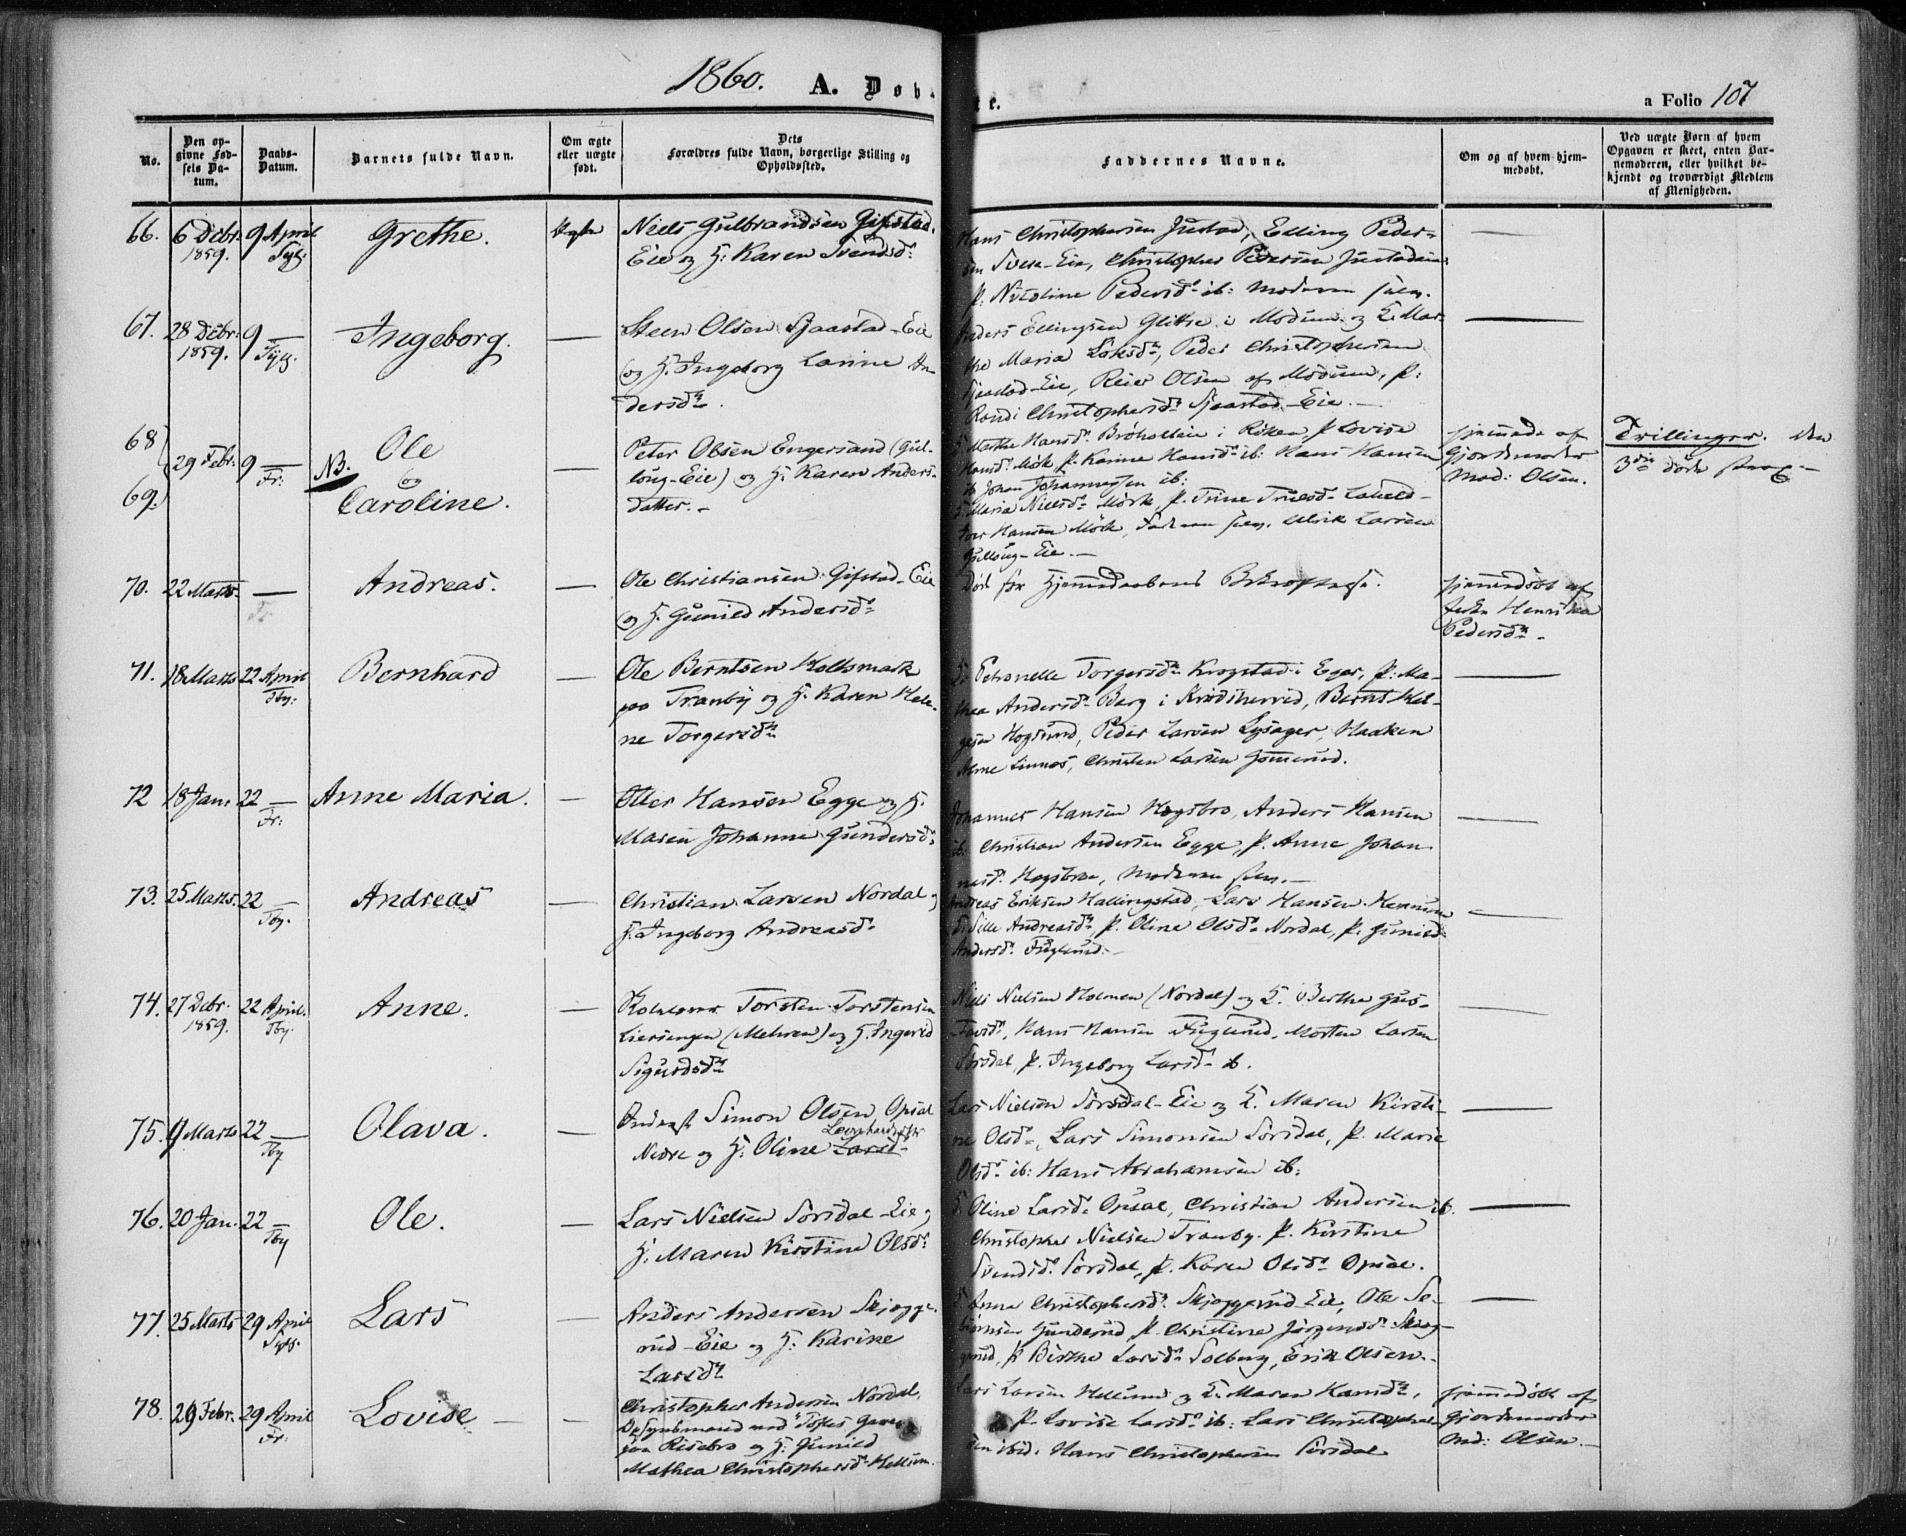 1860.
A. Døbte.
a Folio 107
No.
Den opgivne Fødsels Datum.
Daabs-Datum.
Barnets fulde Navn.
Om ægte eller uægte født.
Dets Forældres fulde Navn, borgerlige Stilling og Opholdssted.
Faddernes Navne.
Om og af hvem hjemmedøbt.
Ved uægte Børn af hvem Opgaven er skeet, enten Barnemoderen, eller hvilket bekjendt og troværdigt Medlem af Menigheden.
66. 6 Debr. 1859. 9 April Sylg. Grethe. Ægte
Niels Gulbrandsen Gifstad
Eie og H. Karen Svendsdr.
Hans Christophersen Justad, Elling Peder-
sen Svere-Eie, Christopher Pedersen Justadeie
P. Nicoline Pedersdr. ib: Moderen selv.
67. 28 Debr. 1859. 9 — Sylg. Ingeborg. —
Steen Olsen Sjaastad-Eie
og H. Ingeborg Lovine An-
dersdr.
Anders Ellingsen Glitre i Modum og H. Mar-
the Maria Larsdr., Peder Christophersen
Sjaastad-Eie, Reier Olsen af Modum, P.
Randi Christophersdr. Sjaastad-Eie. —
68 69. 29 Febr. 9 — Fr: NB: Ole og Caroline. —
Peter Olsen Engersand (Gul-
loug-Eie) og H. Karen Anders-
datter. -
H. Marthe Hansdr. i Røken P. Lovise
Hansdr. Mørk P. Karine Hansdr. ib: Hans Hansen
ib Johan Johannessen ib:
H. Maria Nielsdr. Mørk, P. Trine
Hansen Mørk, Faderen selv. Ulrik Larsen
Gulloug-Eie. —
hjemmed. af
Gjordemoder
Mad: Olsen.
Trillinger. den
3die døde strax —
70. 22 Marts — Fr Andreas. —
Ole Christiansen Gifstad-Eie
og H. Gunild Andersdr.
Død før Hjemmedaabens Bekræftelse.
hjemmedøbt af
Henrikka
Pedersdr. -
71. 18 Marts 22 April Tby: Bernhard —
Ole Berntsen Kolsmark
paa Tranby og H. Karen Hele-
ne Torgersdr.
H. Petronelle Torgersdr. Krogstad i Eger, P. Ma-
thea Andersdr. Berg i Krødsherred, Bernt Hel-
gesen Hogsrud, Peder Larsen Lysager, Haaken
Arne Linnes, Christen Larsen Gomsrud.
72 18 Jan. 22 — Fr: Anne Maria. —
Otter Hansen Egge og H.
Maren Johanne Gundersdr.
Johannes Hansen Hogsbro, Anders Hansen
ib: Christian Andersen Egge, P. Anne Johan
nesdr. Hogsbroe, Moderen selv. —
73. 25 Marts. 22 — Tby. Andreas —
Christian Larsen Nordal og
H. Ingeborg Andreasdr.
Andreas Eriksen Hallingstad, Lars Hansen Hennum
H. Sille Andreasdr., P. Oline Olsdr. Nordal, P. Gunild
Andersdr. Fuglerud. —
74. 27 Debr. 1859. 22 April. Tby. Anne. —
Torsten Torstensen
Liersingen (Mehren) og H. Ingerid
Sigurdsdr.
Niels Nielsen Holmen (Nordal) og H. Berthe Gus-
tavsdr., Hans Hansen Fuglerud, Morten Larsen
Sørsdal, P. Ingeborg Larsdr. ib.
75. 9 Marts 22 — Tby Olava. —
Inderst Simon Olsen Opsal
Nedre og H. Oline Larsd- Leonhardsdtr
Lars Nielsen Sørsdal-Eie og H. Maren Kirsti-
ne Olsdr., Lars Simonsen Sørsdal, P. Marie
Olsdr. ib: Hans Abrahamsen ib:
76. 20 Jan. 22 — Tby Ole. —
Lars Nielsen Sørsdal-Eie og
H. Maren Kirstine Olsdr.
H. Oline Larsdr. Opsal, Christian Andersen ib.
Christopher Nielsen Tranby. P. Kirstine
Svendsdr. Sørsdal, P. Karen Olsdr. Opsal.
77. 25 Marts 29 April Sylg. Lars —
Anders Andersen Skjegge-
rud-Eie og H. Karine
Larsdr.
H. Anne Christophersdr. Skjeggerud-Eie, Ole Se-
biørnsen Gunderud P. Christine Jørgensdr. Skjeg-
gerud, P. Birthe Larsdr. Solberg, Erik Olsen. -
78. 29 Febr. 29 April Fr. Lovise — —
Christopher Andersen Nordal,
paa Risebro og H. Gunild
Mathea Christophersdr. Hellum.
Lars Larsen Hellum og H. Maren Hansdr.,
P. Lovise Larsdr. ib: Lars Christopher
sen ibid. Hans Christophersen Sørsdal.
hjemmedøbt af
Gjordemoder
Md: Olsen. —